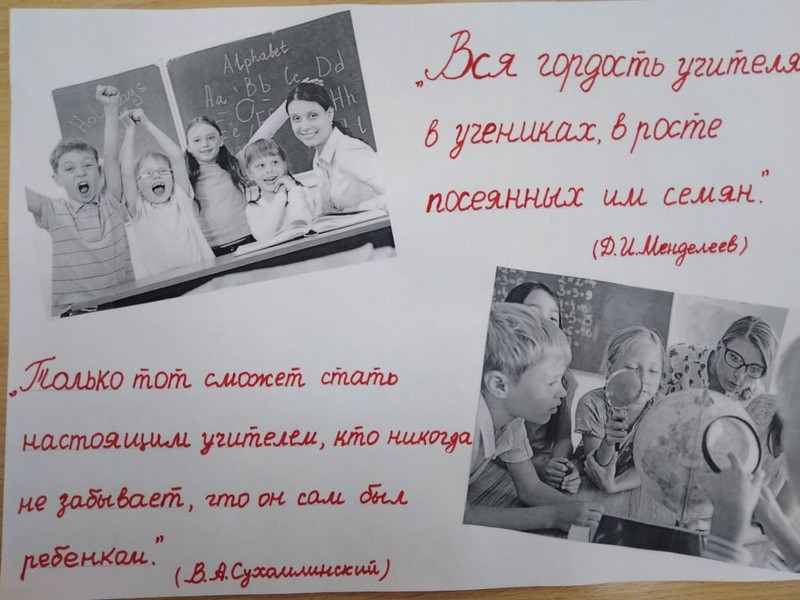 Holidays
Alphabet
Aa Bb Cc Dd
Hh
„Вся гордость учителя
в учениках, в росте
посеянных им семян."
(Д.И.Менделеев)
3=9
„Только тот сможет стать
настоящим учителем, кто никогда
не забывает, что он сам был
ребенком."
(В.А.Сухомлинский)